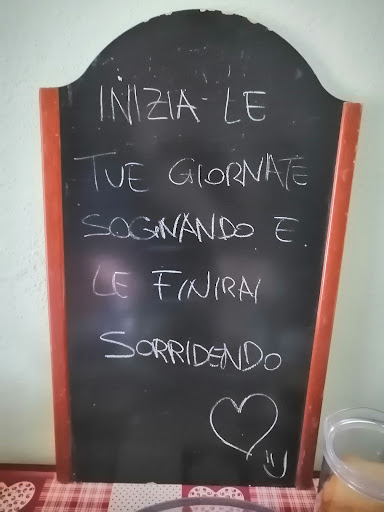 INIZIA LE
TUE GIORNATE
SOGNANDO E
LE FINIRAI
SORRIDENDO